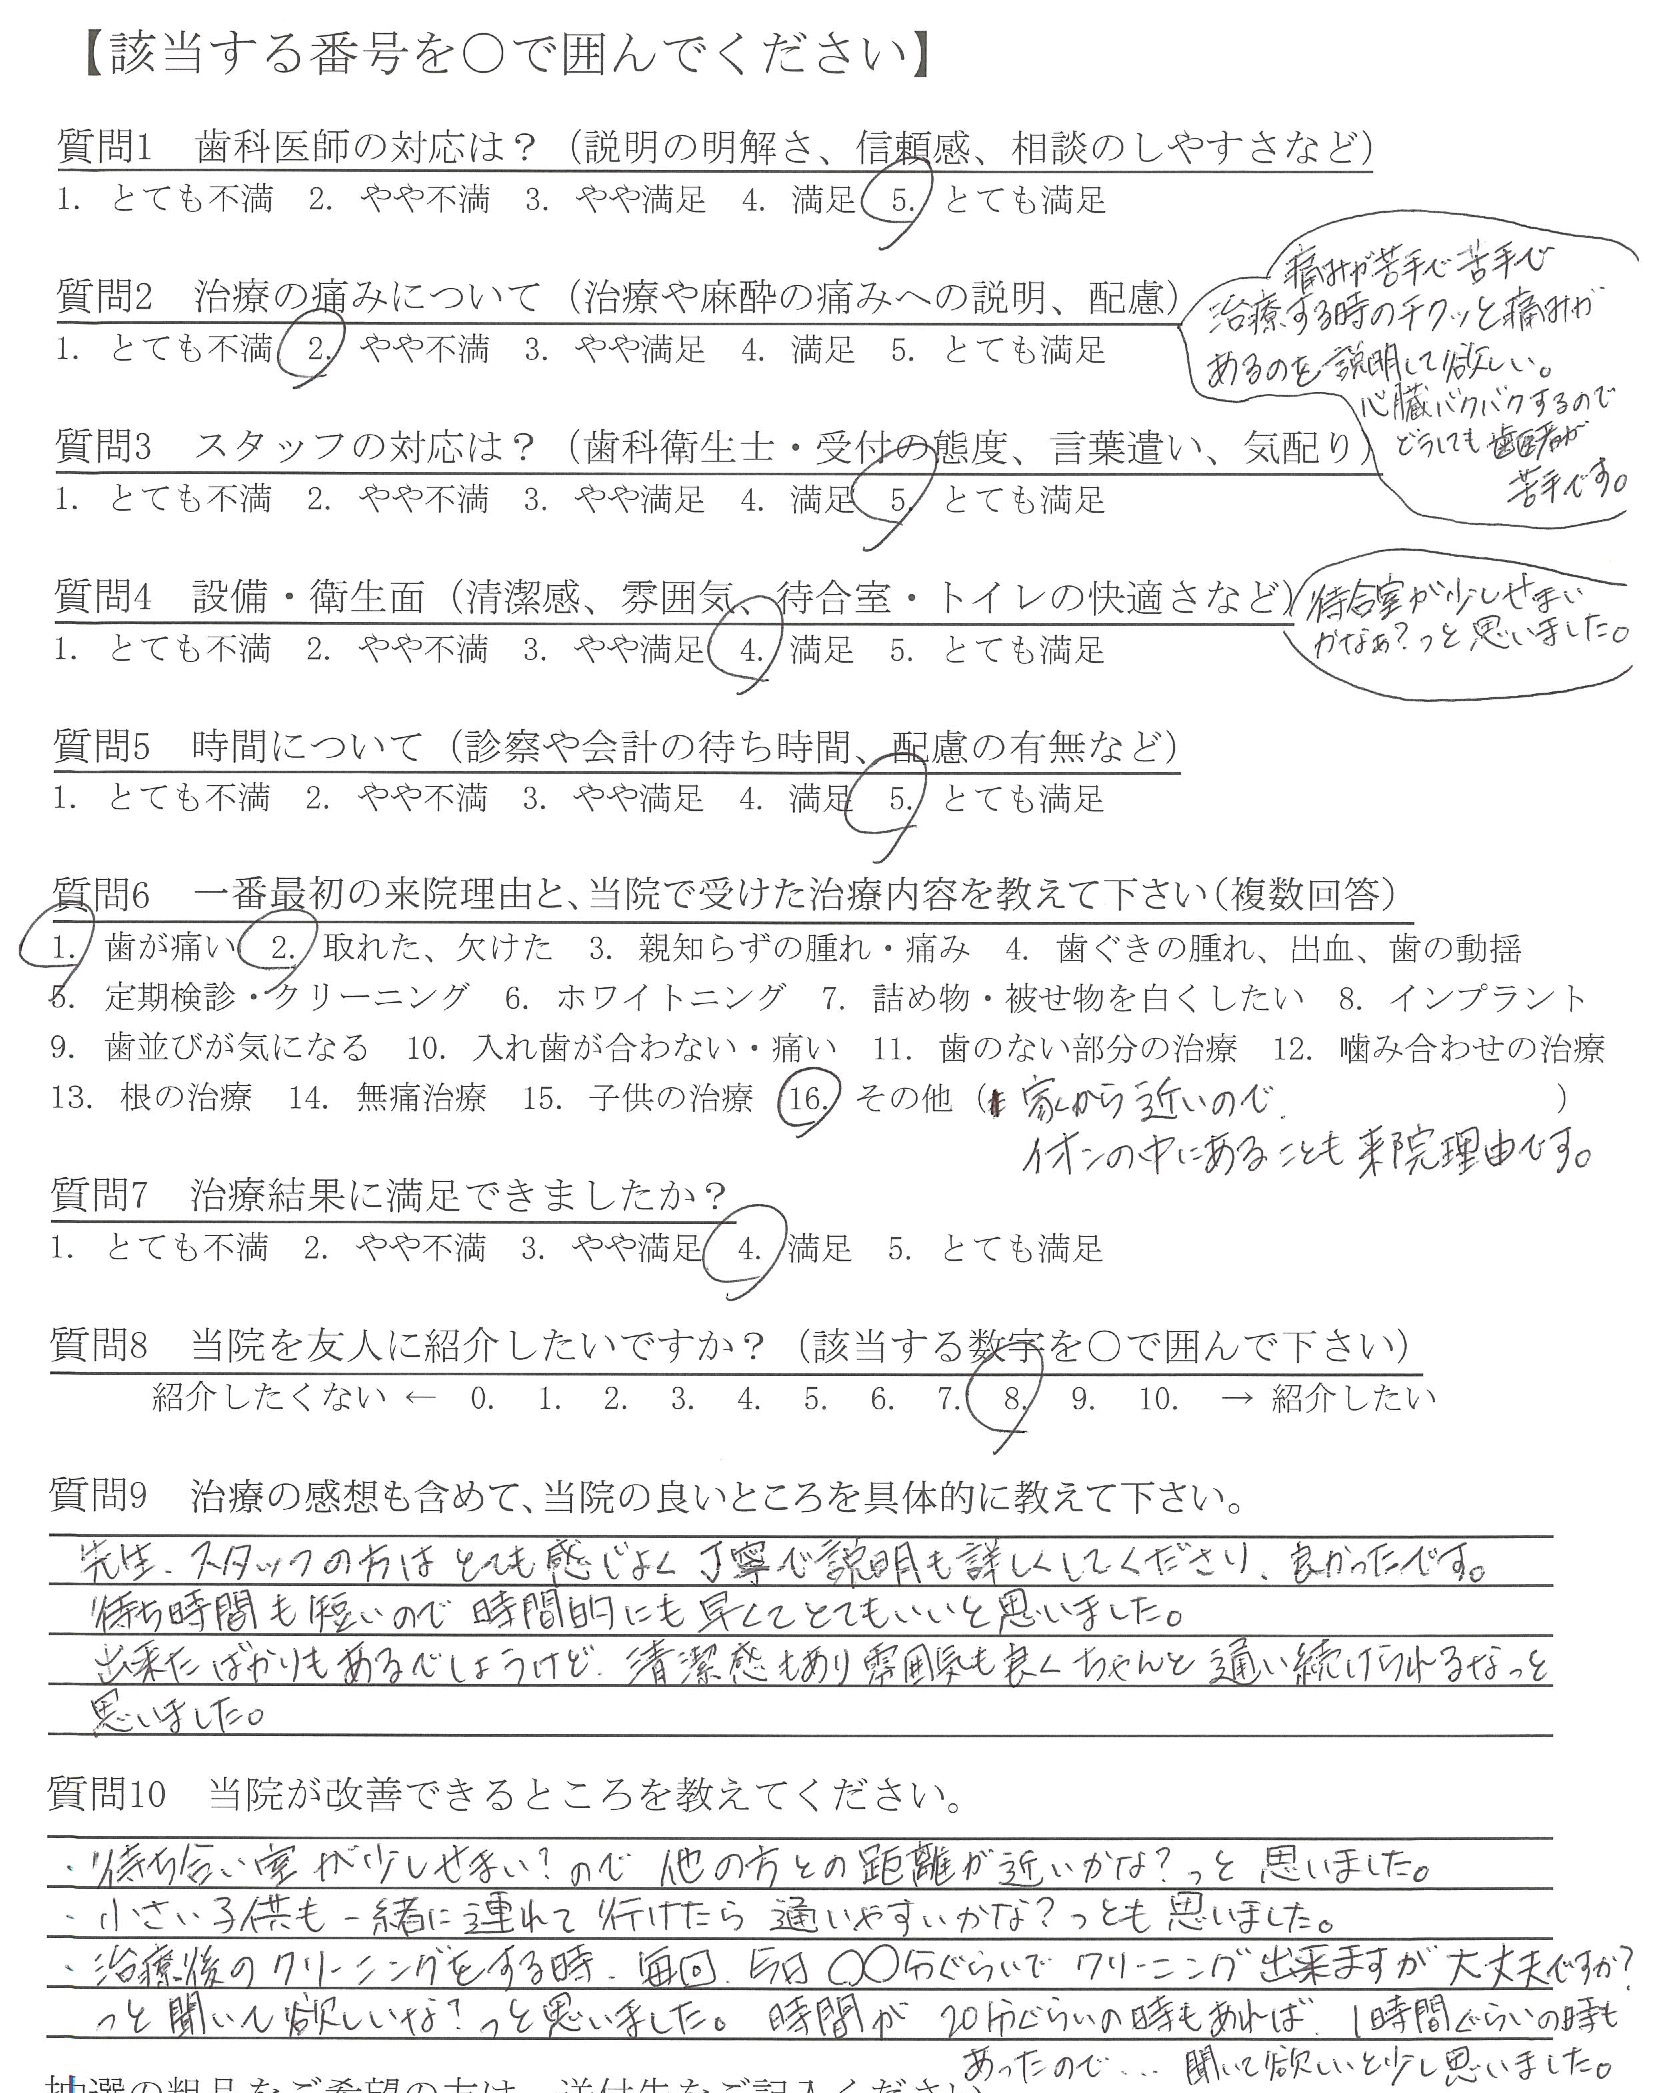 【該当する番号を○で囲んでください】
質問1 歯科医師の対応は？（説明の明解さ、信頼感、相談のしやすさなど）
1. とても不満 2. やや不満 3. やや満足 4. 満足 5. とても満足
質問2 治療の痛みについて（治療や麻酔の痛みへの説明、配慮）
1. とても不満 2. やや不満 3. やや満足 4. 満足 5. とても満足
痛みが苦手で苦手で
治療する時のチクッと痛みが
あるのを説明して欲しい。
心臓バクバクするので
どうしても歯医者が
苦手です。
質問3 スタッフの対応は？（歯科衛生士・受付の態度、言葉遣い、気配り）
1. とても不満 2. やや不満 3. やや満足 4. 満足 5. とても満足
質問4 設備・衛生面（清潔感、雰囲気、待合室・トイレの快適さなど）
1. とても不満 2. やや不満 3. やや満足 4. 満足 5. とても満足
待合室が少しせまい
かなぁ?っと思いました。
質問5 時間について（診察や会計の待ち時間、配慮の有無など）
1. とても不満 2. やや不満 3. やや満足 4. 満足 5. とても満足
質問6 一番最初の来院理由と、当院で受けた治療内容を教えて下さい（複数回答）
1. 歯が痛い 2. 取れた、欠けた 3. 親知らずの腫れ・痛み 4. 歯ぐきの腫れ、出血、歯の動揺
5. 定期検診・クリーニング 6. ホワイトニング 7. 詰め物・被せ物を白くしたい 8. インプラント
9. 歯並びが気になる 10. 入れ歯が合わない・痛い 11. 歯のない部分の治療 12. 噛み合わせの治療
13. 根の治療 14. 無痛治療 15. 子供の治療 16. その他（家から近いので、）
イオンの中にあることも来院理由です。
質問7 治療結果に満足できましたか？
1. とても不満 2. やや不満 3. やや満足 4. 満足 5. とても満足
質問8 当院を友人に紹介したいですか？（該当する数字を○で囲んで下さい）
紹介したくない ← 0. 1. 2. 3. 4. 5. 6. 7. 8. 9. 10. → 紹介したい
質問9 治療の感想も含めて、当院の良いところを具体的に教えて下さい。
先生、スタッフの方はとても感じよく丁寧で説明も詳しくしてくださり、良かったです。
待ち時間も短いので時間的にも早くてとてもいいと思いました。
出来たばかりもあるでしょうけど、清潔感もあり雰囲気も良くちゃんと通い続けられるなっと
思いました。
質問10 当院が改善できるところを教えてください。
・待ち合い室が少しせまい?ので他の方との距離が近いかな?っと思いました。
・小さい子供も一緒に連れて行けたら通いやすいかな?っとも思いました。
・治療後のクリーニングをする時、毎回、今日〇〇分ぐらいでクリーニング出来ますが大丈夫ですか?
っと聞いて欲しいな?っと思いました。時間が20分ぐらいの時もあれば、1時間ぐらいの時も
あったので... 聞いて欲しいと少し思いました。
抽選の粗品をご希望の方は、送付先をご記入ください